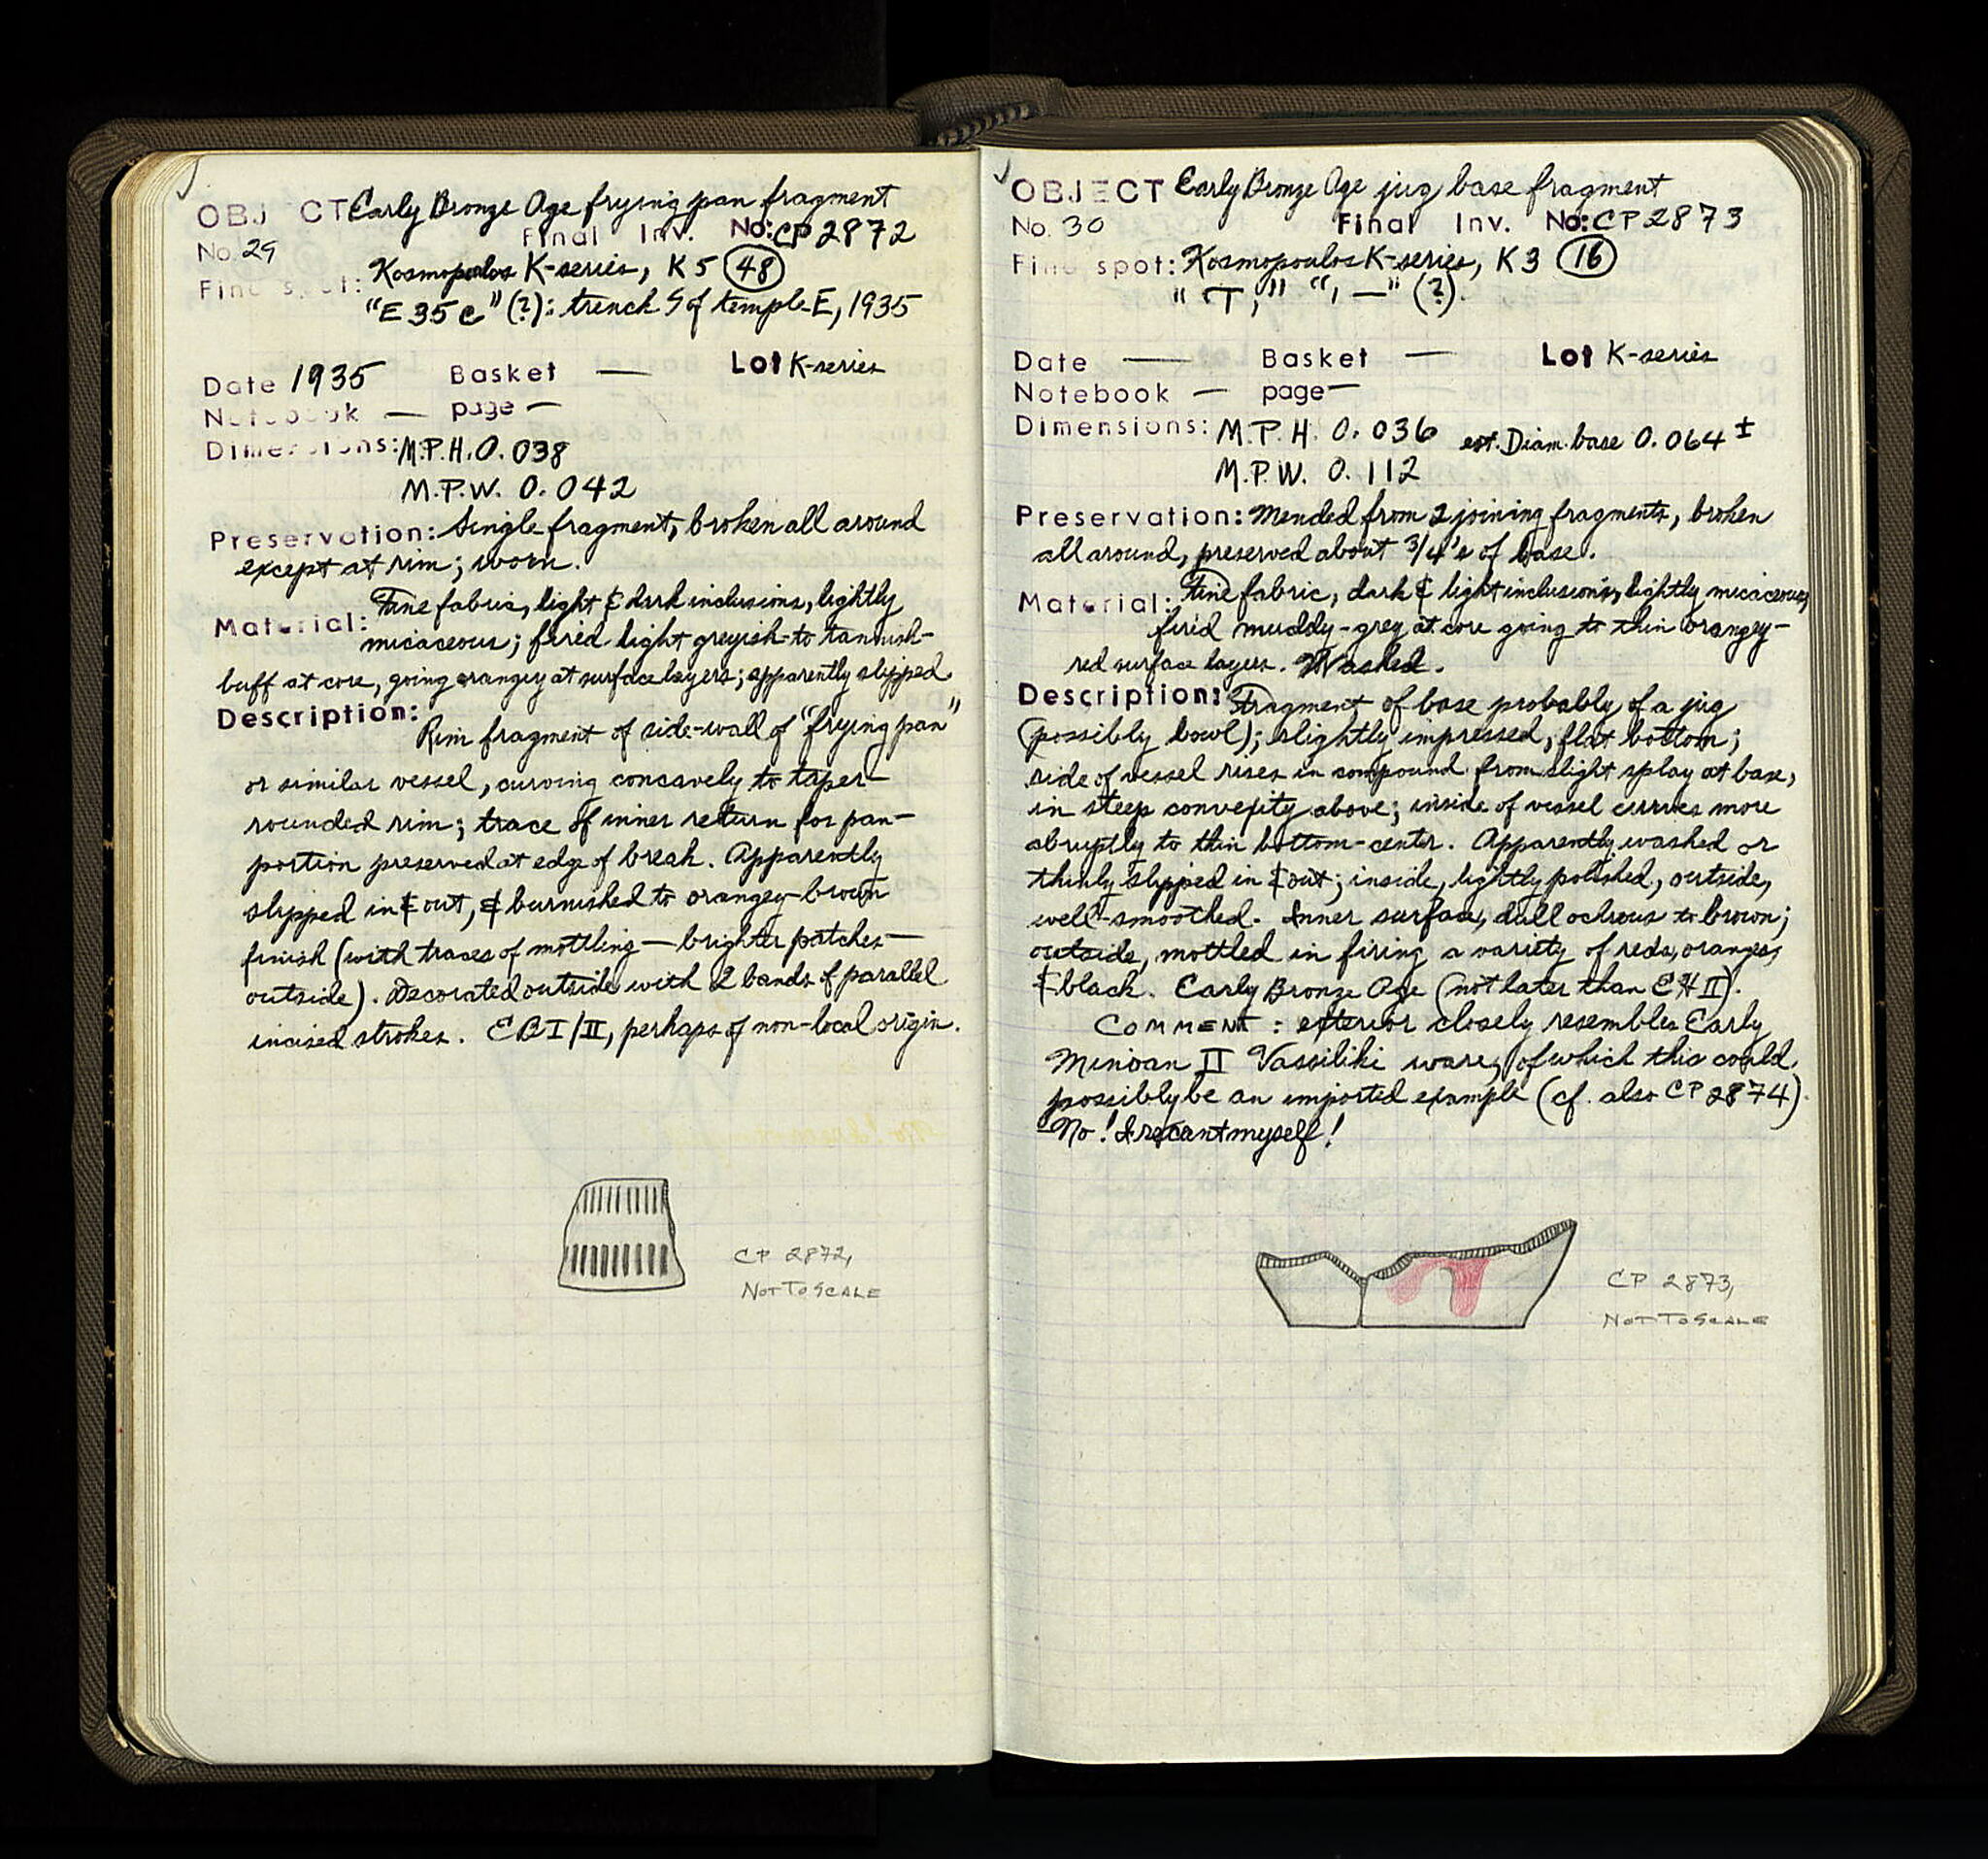 OBJECT Early Bronze Age frying pan fragment
No. 29 Final Inv. No: CP 2872
Find spot: Kosmopoulos K-series, K5 (48)
"E 35 c" (?): trench S of temple E, 1935
Date 1935 Basket — Lot K-series
Notebook — page —
Dimensions: M.P.H. 0.038
M.P.W. 0.042
Preservation: Single fragment, broken all around
except at rim; worn.
Material: Fine fabric, light & dark inclusions, lightly
micaceous; fired light greyish-to tannish-
buff at core, going orangey at surface layers; apparently slipped.
Description:
Rim fragment of side-wall of "frying pan"
or similar vessel, curving concavely to taper-
rounded rim; trace of inner return for pan-
portion preserved at edge of break. Apparently
slipped in & out, & burnished to orangey-brown
finish (with traces of mottling — brighter patches —
outside). Decorated outside with 2 bands of parallel
incised strokes. EB I/II, perhaps of non-local origin.
CP 2872,
NOT TO SCALE
OBJECT Early Bronze Age jug base fragment
No. 30 Final Inv. No: CP 2873
Find spot: Kosmopoulos K-series, K3 (16)
Date — Basket — Lot K-series
Notebook — page —
Dimensions: M.P.H. 0.036 est. Diam. base 0.064 ±
M.P.W. 0.112
Preservation: Mended from 2 joining fragments, broken
all around, preserved about 3/4's of base.
Material: Fine fabric, dark & light inclusions, lightly micaceous,
fired muddy-grey at core going to thin orangey-
red surface layers. Washed.
Description: Fragment of base probably of a jug
(possibly bowl); slightly impressed, flat bottom;
side of vessel rises in compound from slight splay at base,
in steep convexity above; inside of vessel curves more
abruptly to thin bottom-center. Apparently washed or
thinly slipped in & out; inside, lightly polished, outside,
well-smoothed. Inner surface, dull ochrous to brown;
outside, mottled in firing a variety of reds, oranges,
& black. Early Bronze Age (not later than EH II).
COMMENT: exterior closely resembles Early
Minoan II Vassiliki ware, of which this could
possibly be an imported example (cf. also CP 2874).
-No! I recant myself!
CP 2873,
NOT TO SCALE